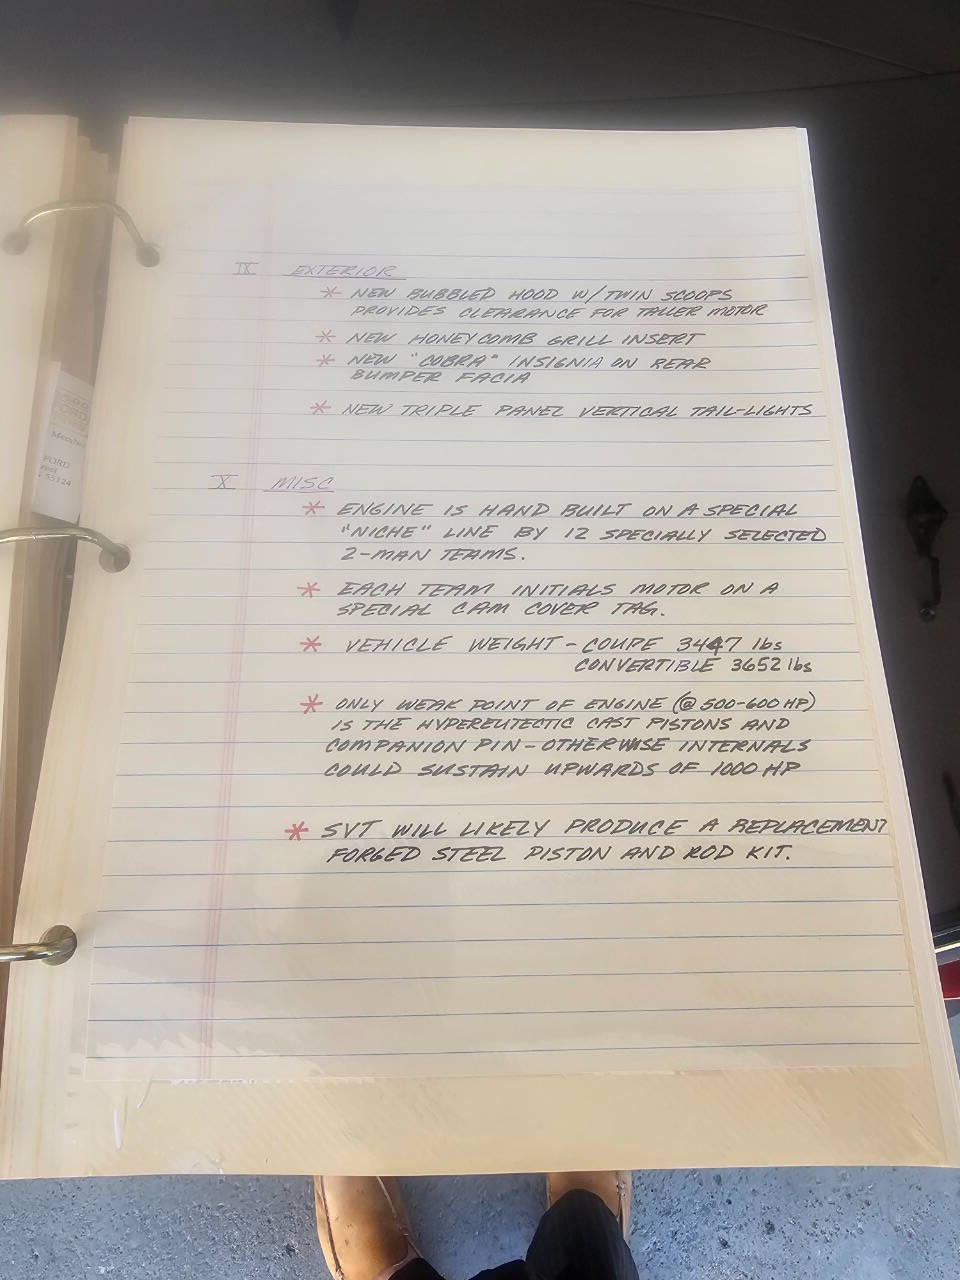 IX EXTERIOR
* NEW BUBBLED HOOD W/ TWIN SCOOPS
PROVIDES CLEARANCE FOR TALLER MOTOR
* NEW HONEYCOMB GRILL INSERT
* NEW "COBRA" INSIGNIA ON REAR
BUMPER FACIA
* NEW TRIPLE PANEL VERTICAL TAIL-LIGHTS
X MISC
* ENGINE IS HAND BUILT ON A SPECIAL
"NICHE" LINE BY 12 SPECIALLY SELECTED
2-MAN TEAMS.
* EACH TEAM INITIALS MOTOR ON A
SPECIAL CAM COVER TAG.
* VEHICLE WEIGHT - COUPE 3447 lbs
CONVERTIBLE 3652 lbs
* ONLY WEAK POINT OF ENGINE (@ 500-600 HP)
IS THE HYPEREUTECTIC CAST PISTONS AND
COMPANION PIN - OTHERWISE INTERNALS
COULD SUSTAIN UPWARDS OF 1000 HP
* SVT WILL LIKELY PRODUCE A REPLACEMENT
FORGED STEEL PISTON AND ROD KIT.
FORD
55124